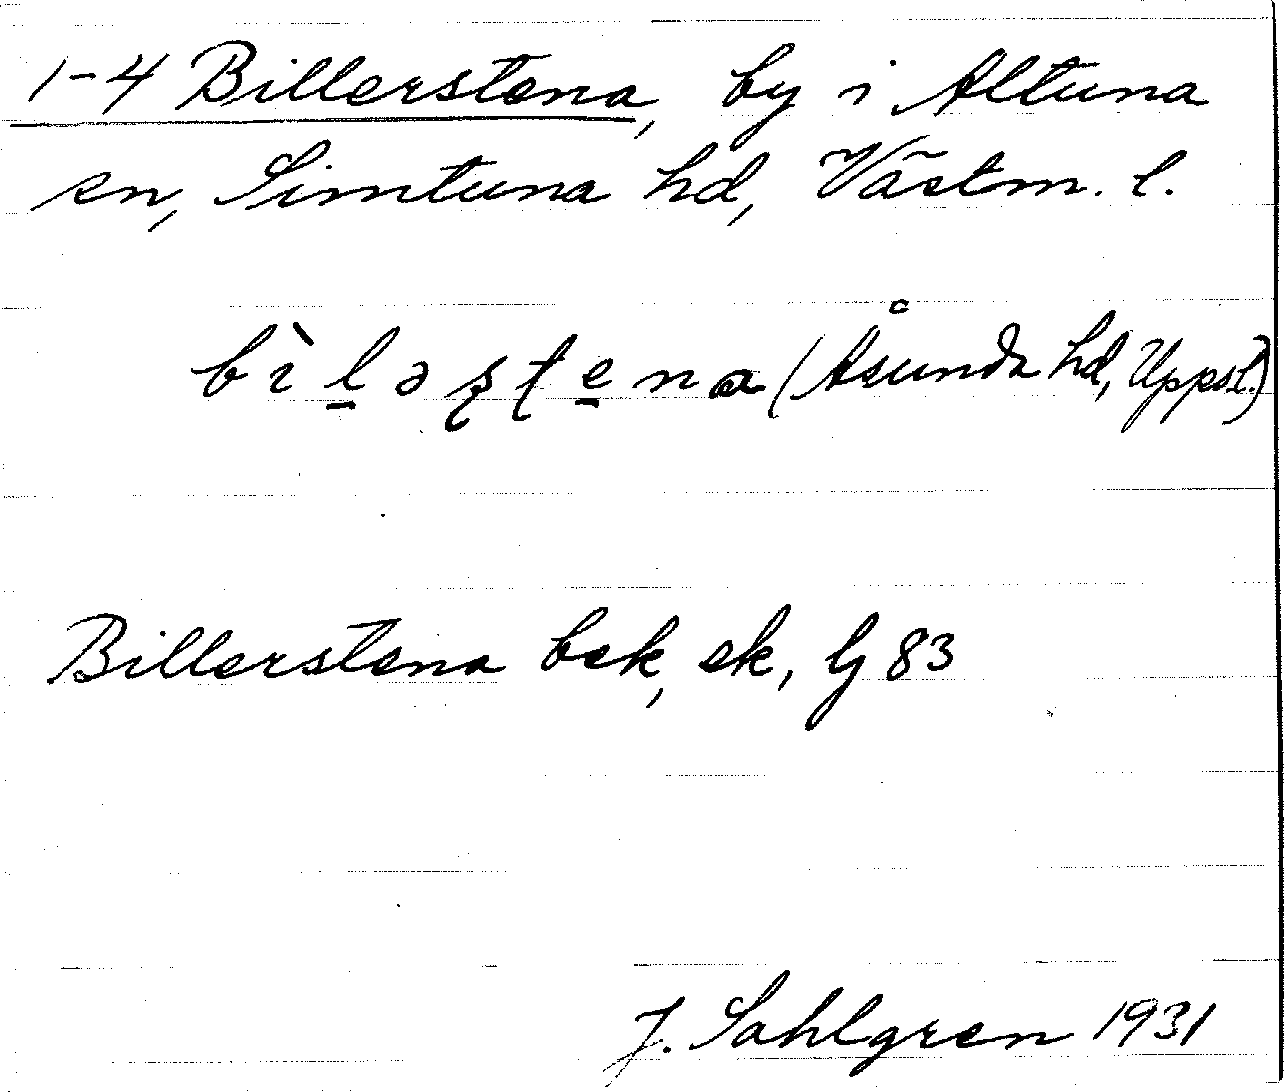 1-4 Billerstena, by i Altuna
sn, Simtuna hd, Västm. l.
bìl̠əʂʈe̠na (Åsunda hd, Uppsl.)
Billerstena bek, ek, lj 83
J. Sahlgren 1931